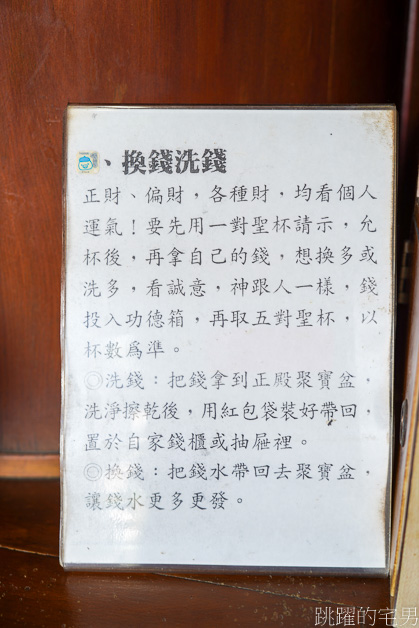 、換錢洗錢
正財、偏財，各種財，均看個人
運氣！要先用一對聖杯請示，允
杯後，再拿自己的錢，想換多或
洗多，看誠意，神跟人一樣，錢
投入功德箱，再取五對聖杯，以
杯數為準。
◎洗錢：把錢拿到正殿聚寶盆，
洗淨擦乾後，用紅包袋裝好帶回，
置於自家錢櫃或抽屜裡。
◎換錢：把錢水帶回去聚寶盆，
讓錢水更多更發。
跳躍的宅男